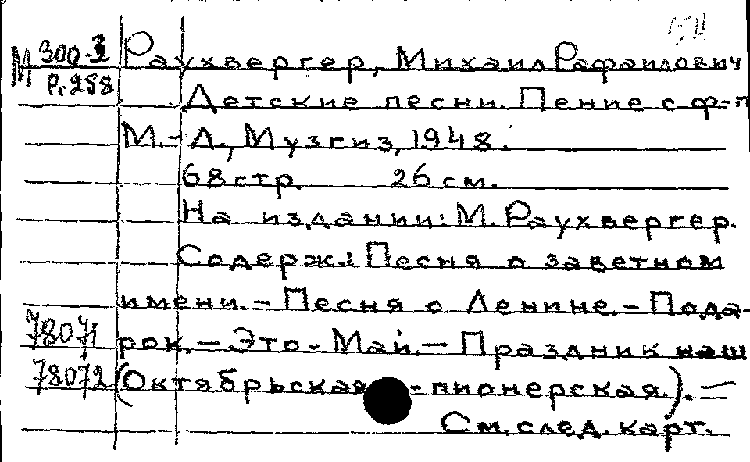 М 300-3 Раухвергер, Михаил Рафаилович
Р.258 Детские песни. Пение с ф-п
М.-Л., Музгиз, 1948.
68 стр. 26 см.
На издании: М. Раухвергер.
Содерж.: Песня о заветном
имени. - Песня о Ленине. - Пода-
78071 рок. - Это - Май. - Праздник наш
78072 (Октябрьская - пионерская). -
См. след. карт.